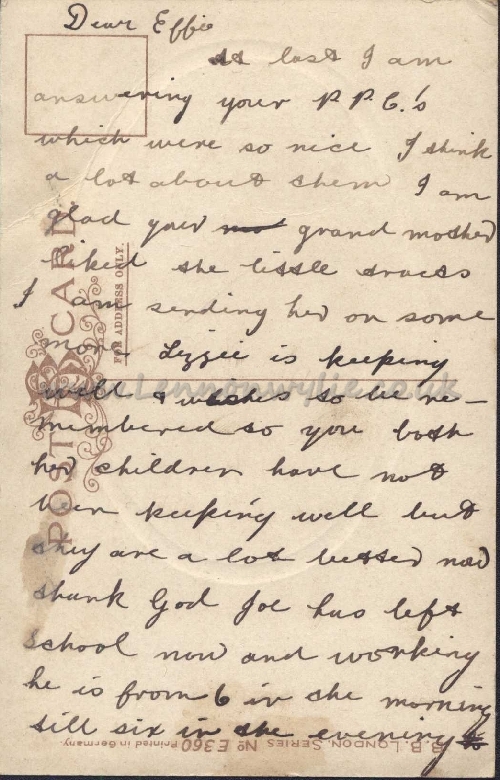 Dear Effie
At last I am
answering your P.P.C.'s
which were so nice I think
a lot about them I am
glad your grand mother
liked the little tracts
I am sending her on some
more Lizzie is keeping
well & wishes to be re-
membered to you both
her children have not
been keeping well but
they are a lot better now
thank God Joe has left
school now and working
he is from 6 in the morning
till six in the evening
POST CARD
FOR ADDRESS ONLY.
B.B. LONDON. SERIES No E360 Printed in Germany.
www.Lennonwylie.co.uk